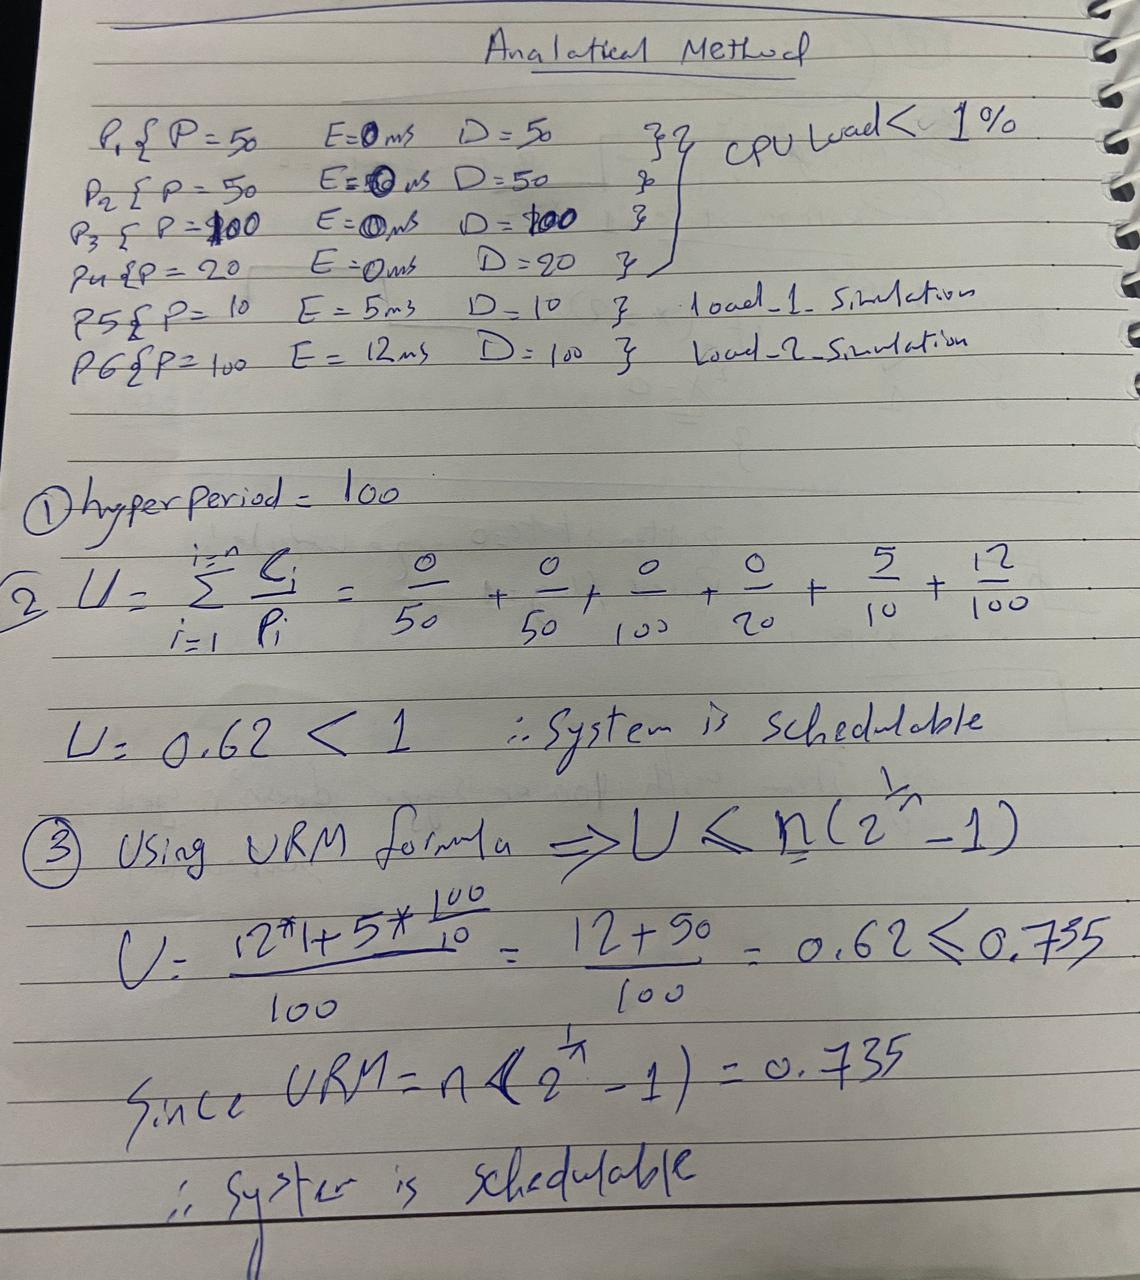 Analatical Method
P1 { P = 50 E=0ms D = 50 } CPU Load < 1%
P2 { P = 50 E=0ms D=50 }
P3 { P = 100 E=0ms D = 100 }
P4 {P = 20 E=0ms D = 20 }
P5 { P= 10 E = 5ms D= 10 } load_1_Simulation
P6 {P= 100 E = 12ms D= 100 } Load_2_Simulation
① hyperPeriod = 100
2 U = Σ(i=1, i=n) Ci/Pi = 0/50 + 0/50 + 0/100 + 0/20 + 5/10 + 12/100
U= 0.62 < 1 ∴ System is schedulable
③ Using URM formula ⇒ U ≤ n(2^1/n - 1)
U= (12*1+5*100/10)/100 = (12+50)/100 = 0.62 ≤ 0.735
Since URM = n(2^1/n - 1) = 0.735
∴ System is schedulable